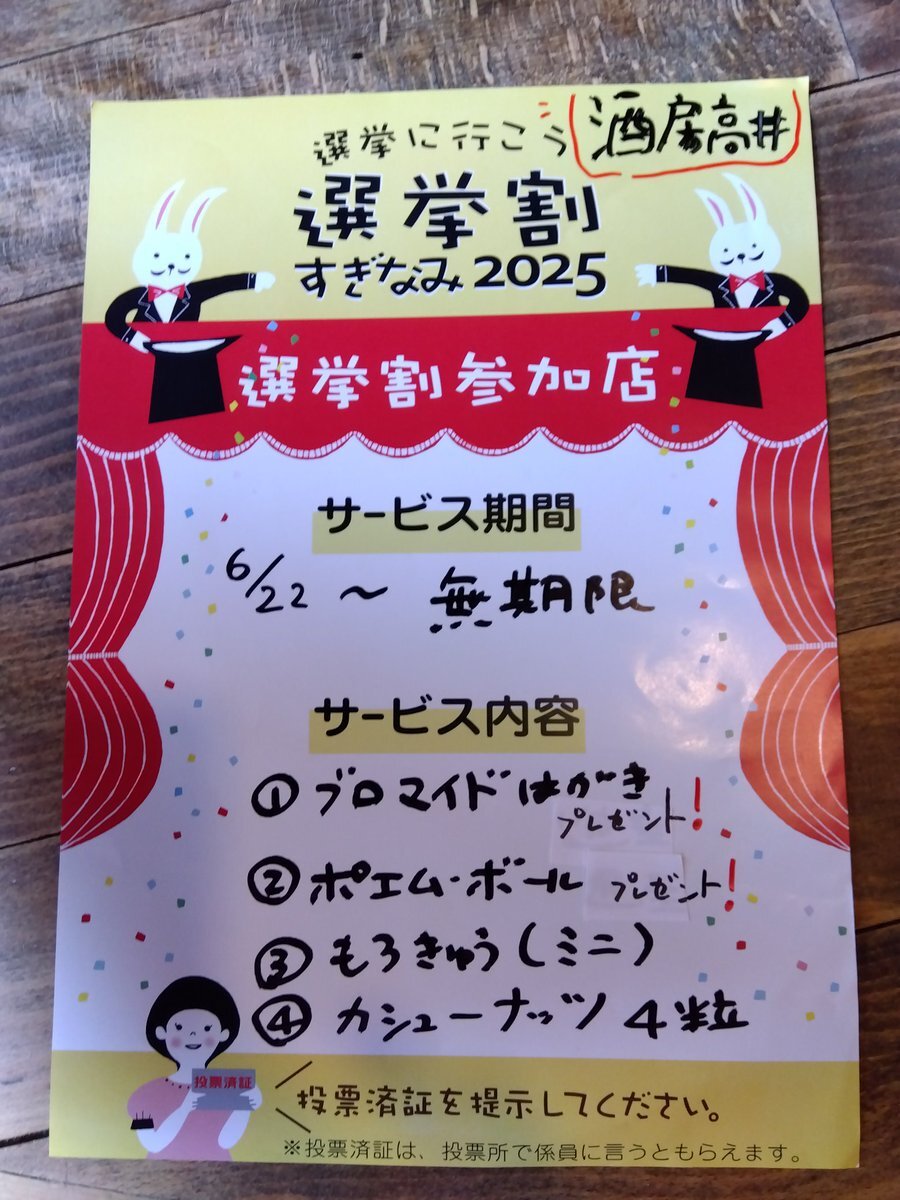 選挙に行こう
酒房高井
選挙割
すぎなみ2025
選挙割参加店
サービス期間
6/22 ～ 無期限
サービス内容
① ブロマイドはがき
プレゼント!
② ポエム・ボール プレゼント!
③ もろきゅう(ミニ)
④ カシューナッツ 4粒
投票済証
投票済証を提示してください。
※投票済証は、投票所で係員に言うともらえます。